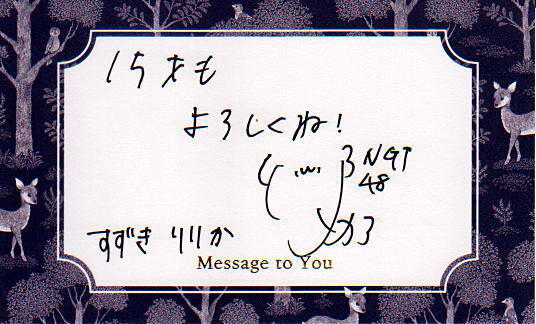 15才も
よろしくね!
NGT
48
すずき りりか
Message to You